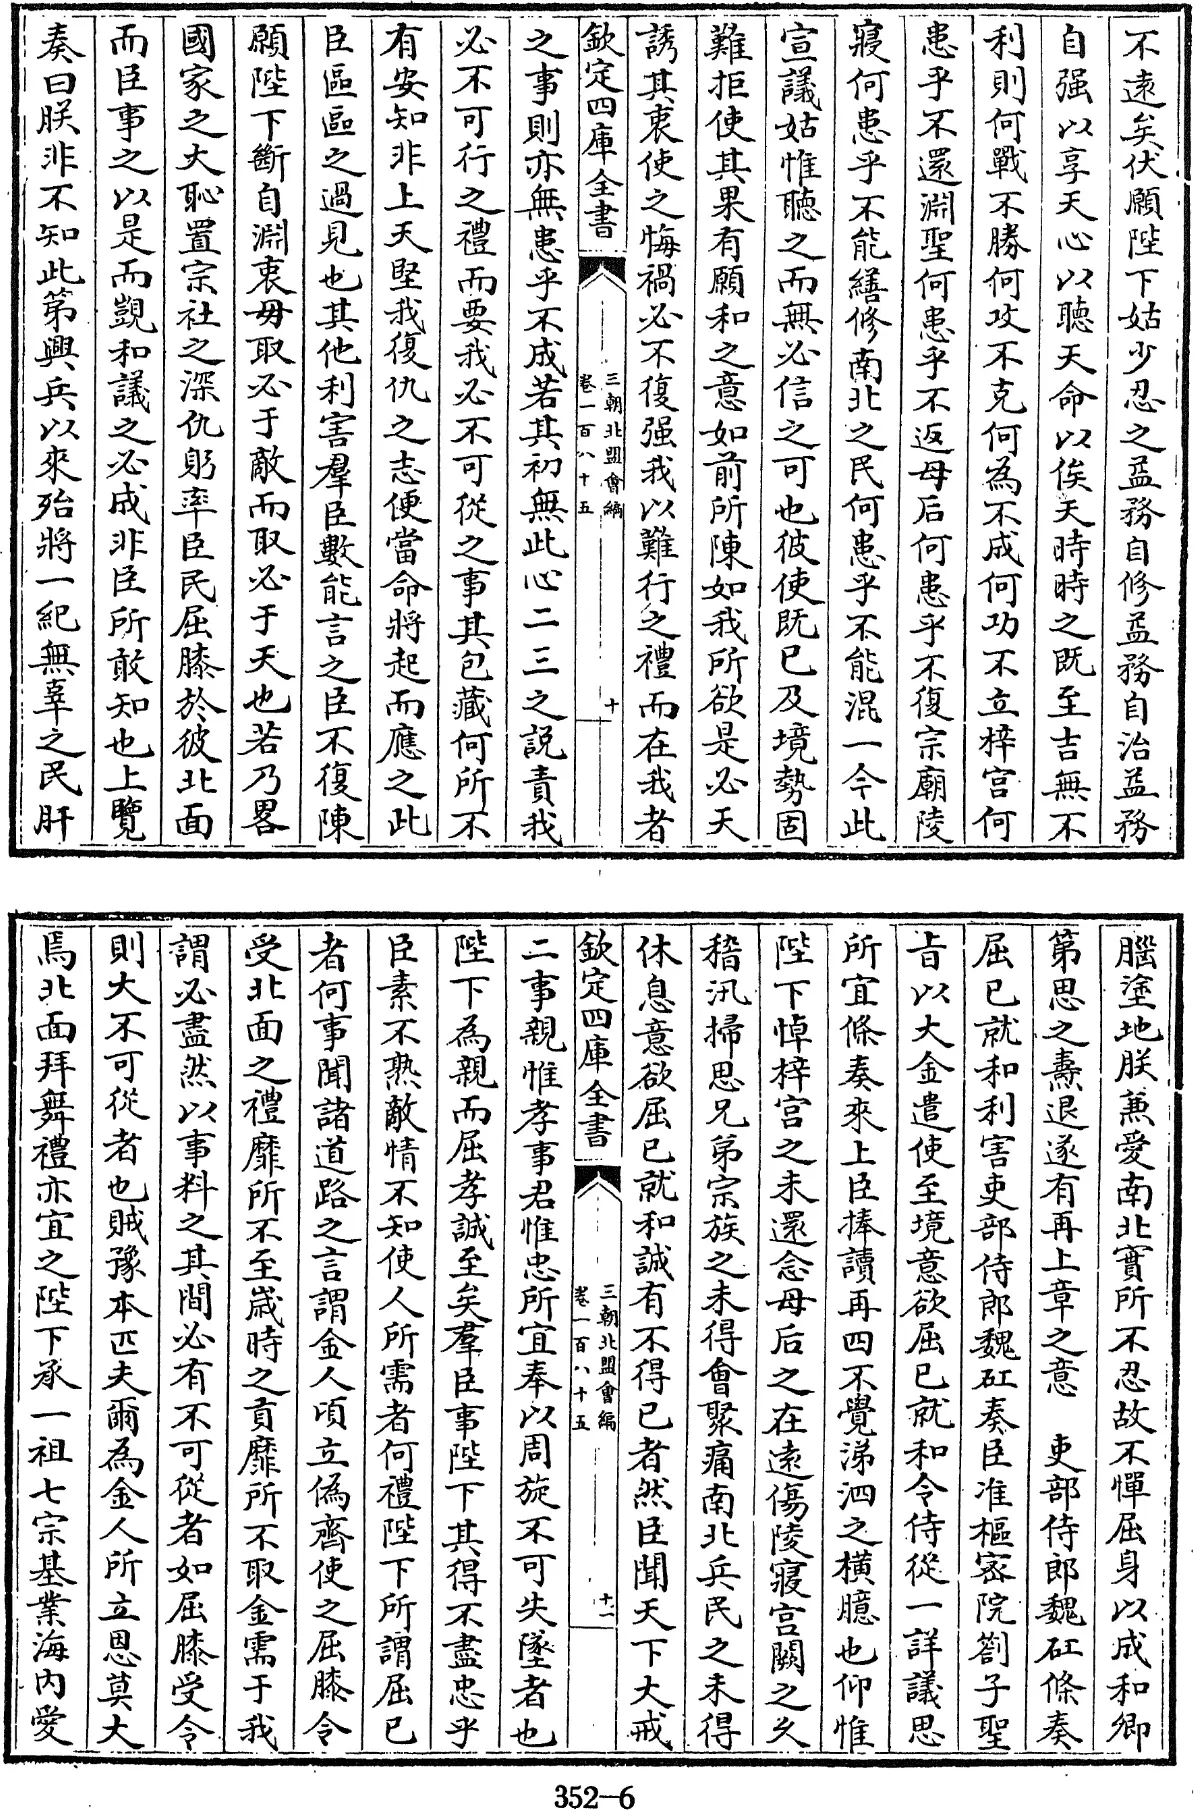 不遠矣伏願陛下姑少忍之益務自修益務自治益務
自强以享天心以聽天命以俟天時時之既至吉無不
利則何戰不勝何攻不克何為不成何功不立梓宫何
患乎不還淵聖何患乎不返母后何患乎不復宗廟陵
寝何患乎不能繕修南北之民何患乎不能混一今此
宣議姑惟聽之而無必信之可也彼使既已及境勢固
難拒使其果有願和之意如前所陳如我所欲是必天
誘其衷使之悔禍必不復强我以難行之禮而在我者
欽定四庫全書
三朝北盟會編
卷一百八十五
十
之事則亦無患乎不成若其初無此心二三之説責我
必不可行之禮而要我必不可從之事其包藏何所不
有安知非上天堅我復仇之志便當命將起而應之此
臣區區之過見也其他利害羣臣數能言之臣不復陳
願陛下斷自淵衷毋取必于敵而取必于天也若乃畧
國家之大恥置宗社之深仇躬率臣民屈膝於彼北面
而臣事之以是而覬和議之必成非臣所敢知也上覽
奏曰朕非不知此第興兵以來殆將一紀無辜之民肝
腦塗地朕兼愛南北實所不忍故不憚屈身以成和卿
第思之燾退遂有再上章之意　吏部侍郎魏矼條奏
屈已就和利害吏部侍郎魏矼奏臣准樞密院劄子聖
旨以大金遣使至境意欲屈已就和令侍從一詳議思
所宜條奏來上臣捧讀再四不覺涕泗之横臆也仰惟
陛下悼梓宫之未還念母后之在遠傷陵寢宫闕之久
稽汛掃思兄弟宗族之未得會聚痛南北兵民之未得
休息意欲屈已就和誠有不得已者然臣聞天下大戒
欽定四庫全書
三朝北盟會編
卷一百八十五
十一
二事親惟孝事君惟忠所宜奉以周旋不可失墜者也
陛下為親而屈孝誠至矣羣臣事陛下其得不盡忠乎
臣素不熟敵情不知使人所需者何禮陛下所謂屈已
者何事聞諸道路之言謂金人頃立偽齊使之屈膝令
受北面之禮靡所不至歲時之貢靡所不取金需于我
謂必盡然以事料之其間必有不可從者如屈膝受令
則大不可從者也賊豫本匹夫爾為金人所立恩莫大
焉北面拜舞禮亦宜之陛下承一祖七宗基業海内愛
352—6